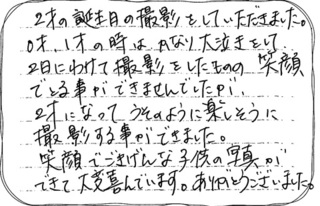 2才の誕生日の撮影をしていただきました。
0才、1才の時は かなり大泣きをして
2日にわけて撮影をしたものの 笑顔
でとる事ができませんでしたが、
2才になって うそのように楽しそうに
撮影する事ができました。
笑顔でごきげんな子供の写真が
できて大変喜んでいます。ありがとうございました。